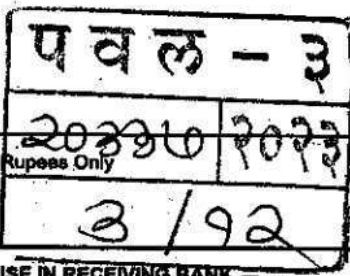 पवल - ३
२०३३७ २०२३
Rupees Only
३ / १२
ISE IN RECEIVING BANK